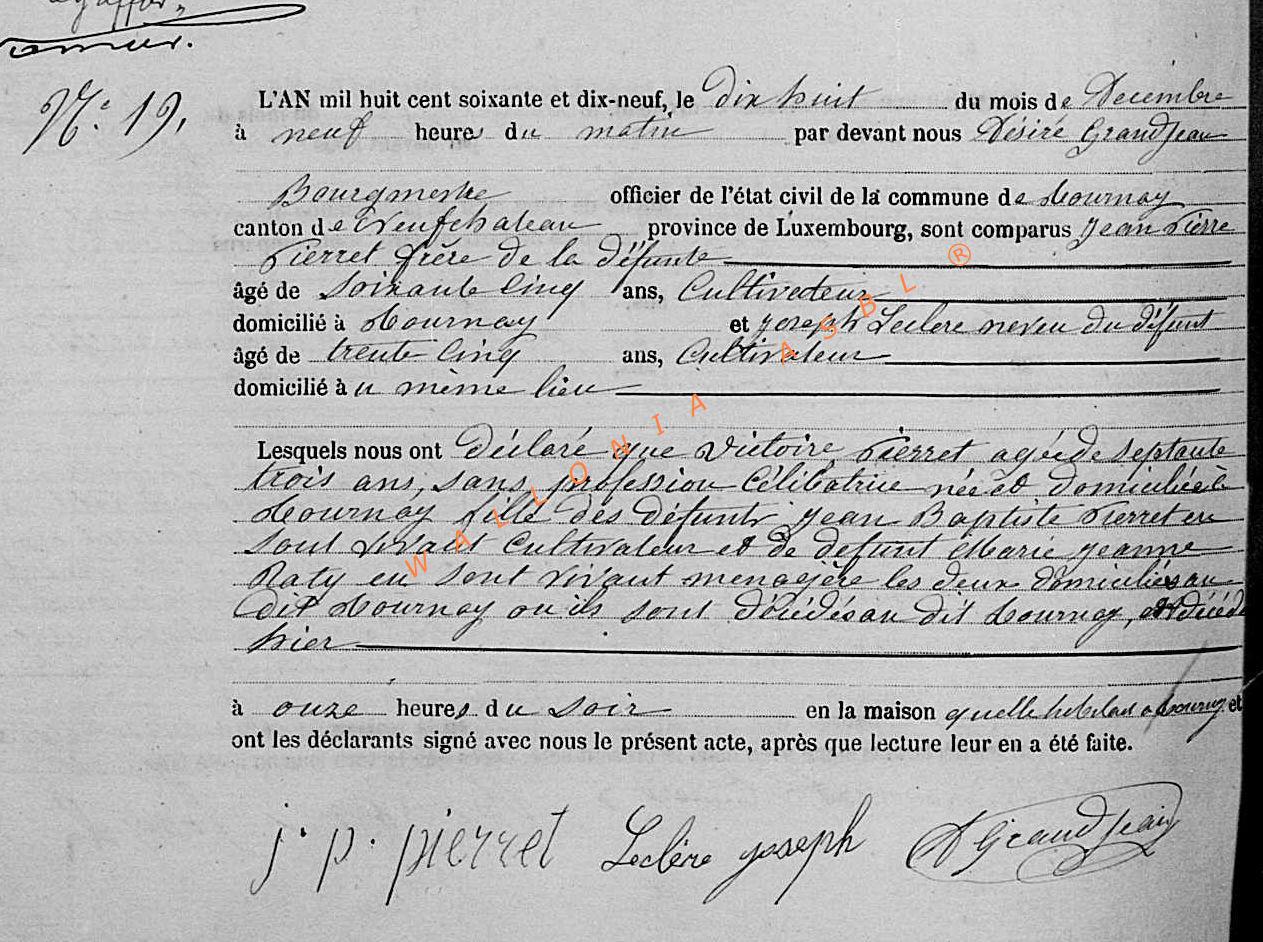 N° 19,
L'AN mil huit cent soixante et dix-neuf, le Dix huit du mois de Décembre
à neuf heures du matin par devant nous Désiré Grandjean
Bourgmestre officier de l'état civil de la commune de Tournay
canton de Neufchateau province de Luxembourg, sont comparus Jean Pierre
Pierret frère de la défunte
âgé de Soixante Cinq ans, Cultivateur
domicilié à Tournay et Joseph Leclere neveu du défunt
âgé de trente Cinq ans, Cultivateur
domicilié au même lieu
Lesquels nous ont Déclaré que Victoire Pierret agée de septante
trois ans, sans profession Célibatrice née et domiciliée à
Tournay fille des défunts Jean Baptiste Pierret en
sont vivant Cultivateur et de defunt Marie Jeanne
Raty en sont vivant menagère les deux domiciliés au
dit Tournay ou ils sont décédés au dit Tournay, est décédé
hier
à onze heures du soir en la maison quelle habitait a Tournay et
ont les déclarants signé avec nous le présent acte, après que lecture leur en a été faite.
j. p. pierret Leclère joseph D Grandjean
WALLONIA ASBL ®